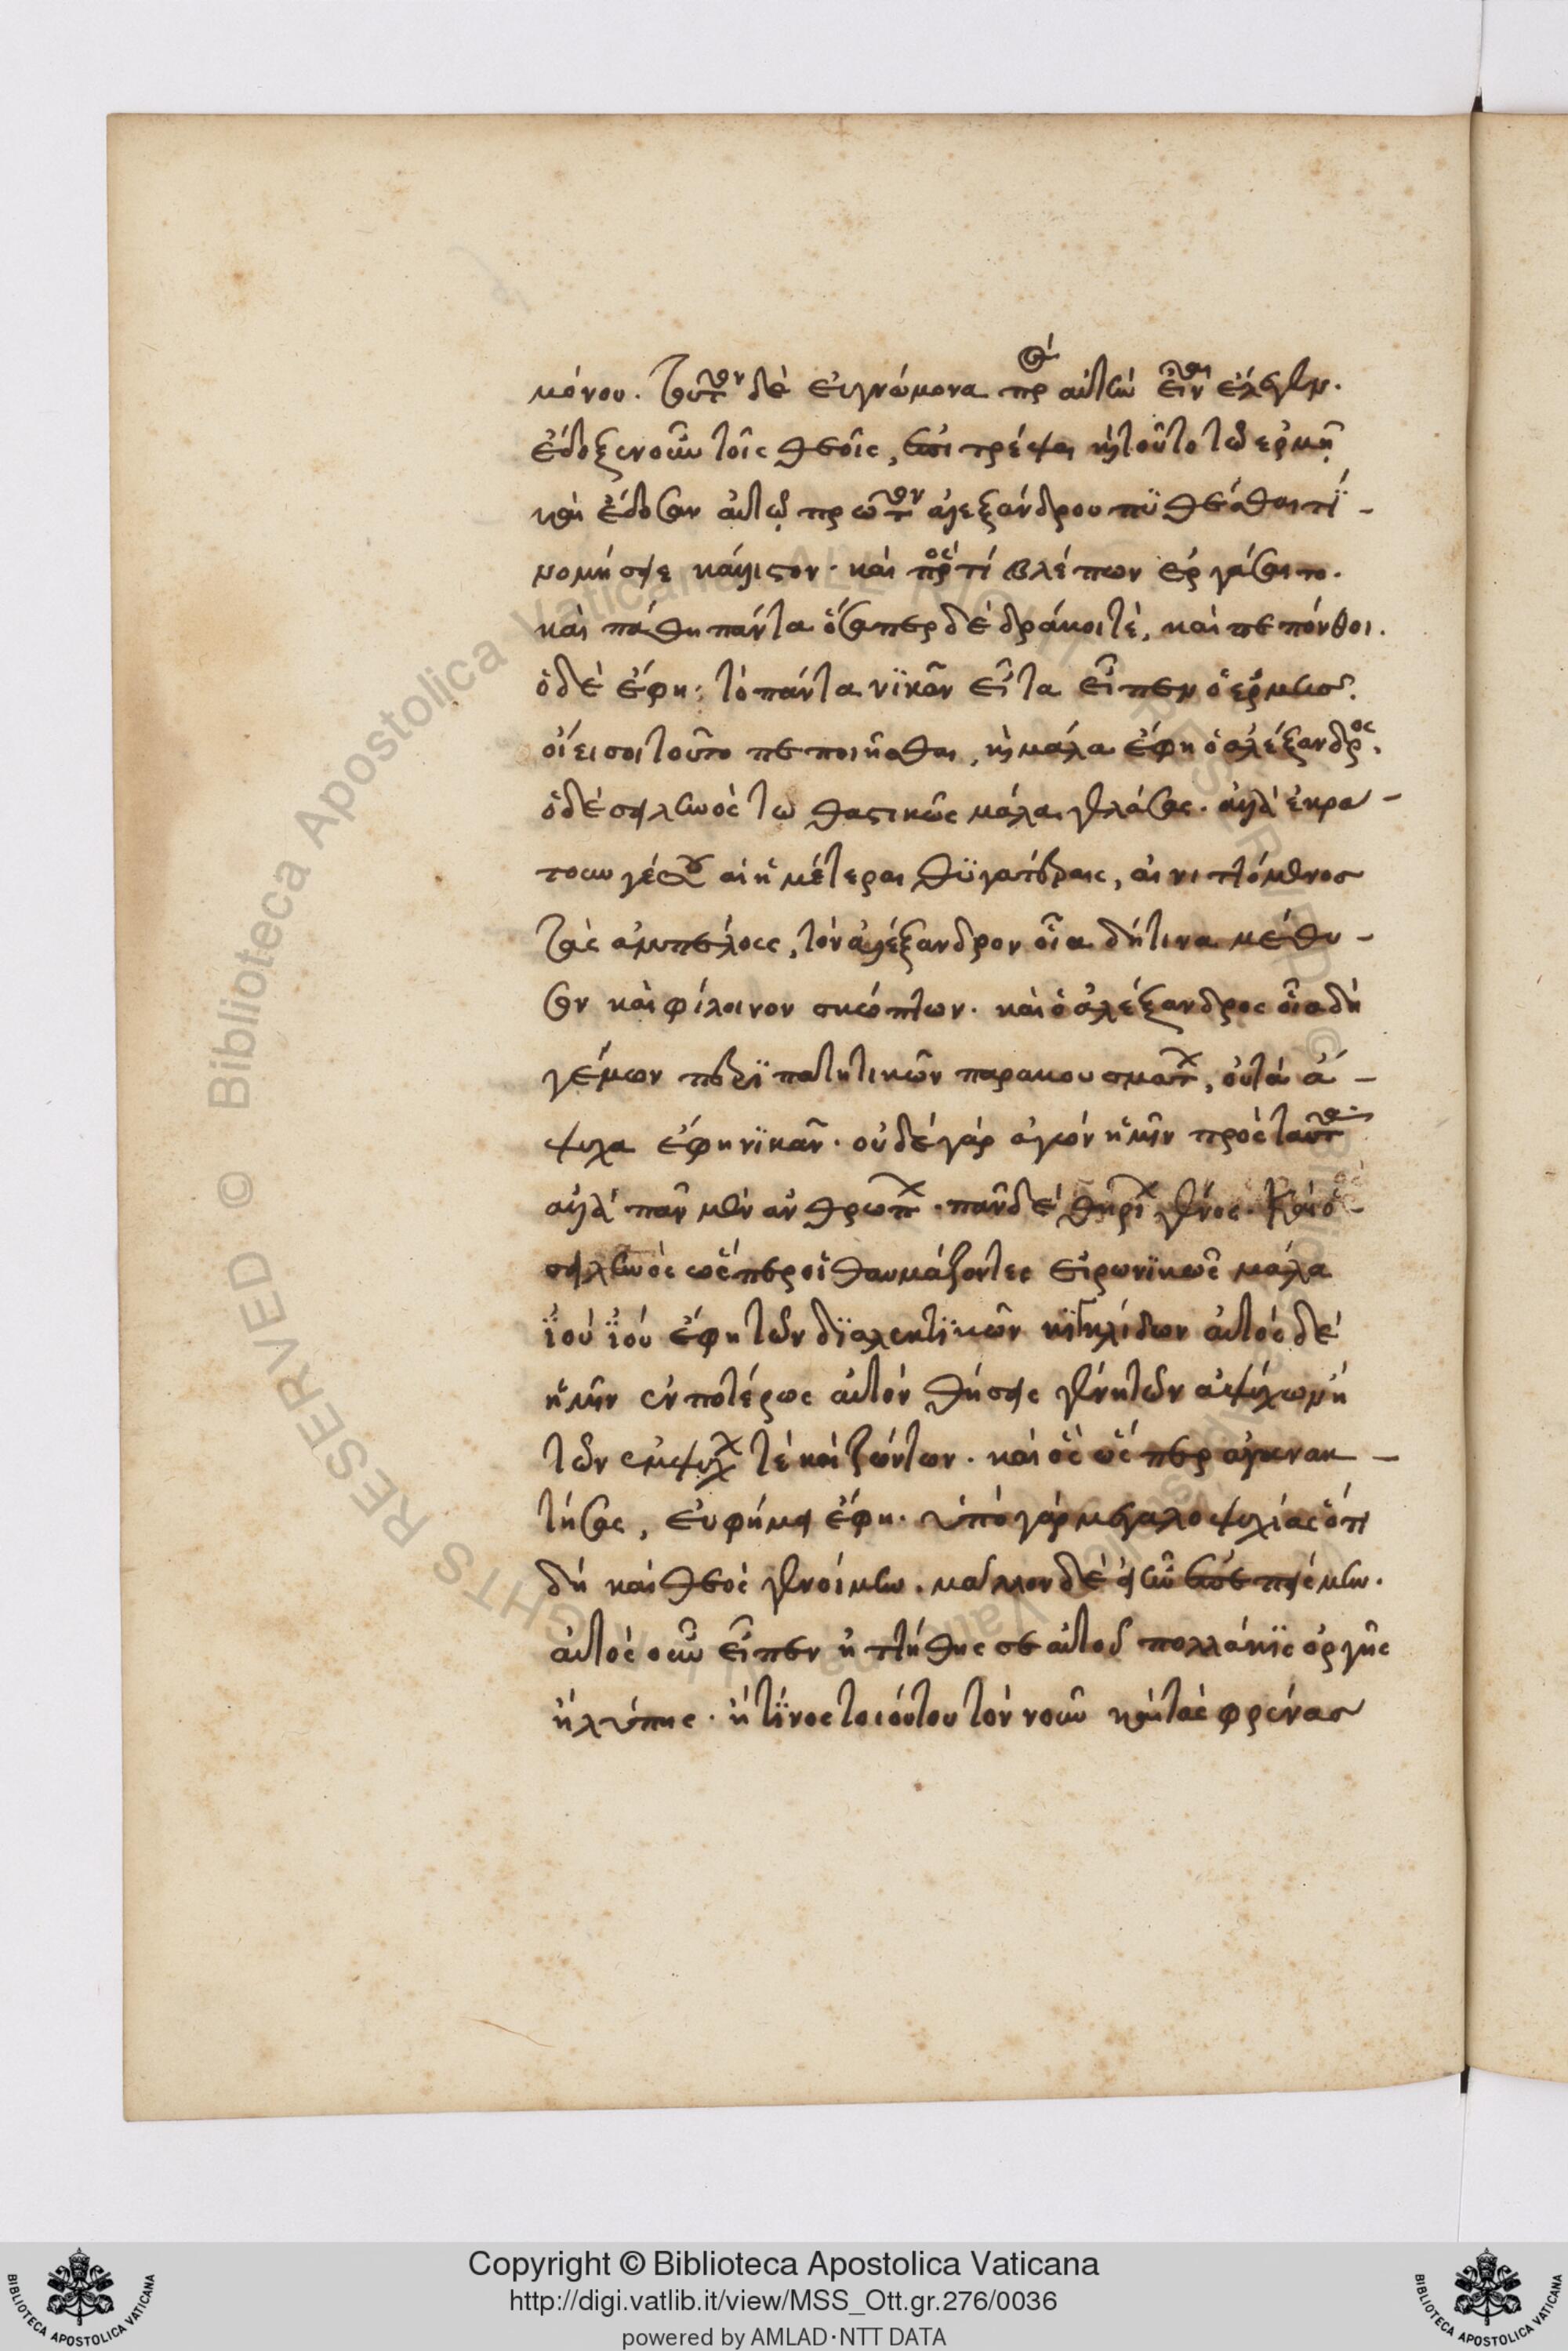 μόνου. τοῦτον δὲ εὐγνώμονα παρ' αὐτῶν εἶναι ἔλεγεν.
ἔδοξεν οὖν τοῖς θεοῖς, ἐπιτρέψαι καὶ τοῦτο τῶ ἑρμῆ
καὶ ἔδοσαν αὐτῷ πρῶτον ἀλεξάνδρου πϋθέσθαι τί -
νομίσειε κάλλιστον. καὶ πρὸς τί βλέπων ἐργάσαιτο.
καὶ πάθη πάντα ὅσαπερ δεδράκοι τὲ, καὶ πεπόνθοι.
ὁ δὲ ἔφη· τὸ πάντα νϊκᾶν εἶτα εἶπεν ὁ ἑρμῆς.
οἴει σοι τοῦτο πεποιῆσθαι, καὶ μάλα ἔφη ὁ ἀλέξανδρος.
ὁ δὲ σειληνὸς τωθαστικῶς μάλα γελάσας. ἀλλὰ ἐκρα -
τουν γέ σου αἱ ἡμέτεραι θϋγατέραις, αἰνιττόμενος
τὰς ἀμπέλους, τὸν ἀλέξανδρον οἷα δή τινα μέθυ -
σον καὶ φίλοινον σκώπτων. καὶ ὁ ἀλέξανδρος οἷα δὴ
γέμων περϊπατητικῶν παρακουσμάτων, οὐ τὰ ἄ -
ψυχα ἔφη νϊκᾶν. οὐδὲ γὰρ ἀγὼν ἡμῖν πρὸς ταῦτα
ἀλλὰ πᾶν μὲν ἀνθρώπων. πᾶν δὲ θηρίων γένος. καὶ ὁ -
σειληνὸς ὥσπερ οἱ θαυμάζοντες εἰρωνϊκῶς μάλα
ἰοὺ ἰοὺ ἔφη τῶν δϊαλεκτϊκῶν κϊγκλίδων αὐτὸς δὲ
ἡμῖν ἐν ποτέρως αὐτὸν θήσεις γένη τῶν ἀψύχων ἢ
τῶν ἐμψύχων τὲ καὶ ζώντων. καὶ ὃς ὥσπερ ἀγανακ -
τήσας, εὐφήμει ἔφη. ὑπὸ γὰρ μεγαλοψυχίας ὅτι
δὴ καὶ θεὸς γενοίμην. μᾶλλον δὲ εἴην ἐπεπείσμην.
αὐτὸς οὖν εἶπεν ἡττήθης σεαυτοῦ πολλάκϊς ὀργῆς
ἢ λύπης. ἤ τϊνος τοιούτου τὸν νοῦν καὶ τὰς φρένας
Copyright © Biblioteca Apostolica Vaticana
http://digi.vatlib.it/view/MSS_Ott.gr.276/0036
powered by AMLAD·NTT DATA
BIBLIOTECA APOSTOLICA VATICANA
BIBLIOTECA APOSTOLICA VATICANA
© Biblioteca Apostolica Vaticana ALL RIGHTS RESERVED